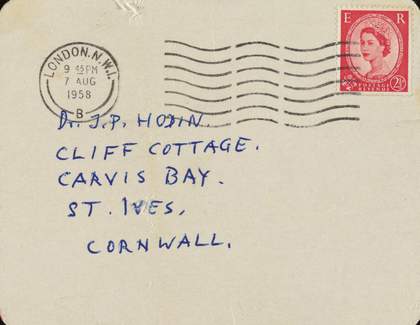 E R
POSTAGE REVENUE
2½D
LONDON. N.W.1.
9 45 PM
7 AUG
1958
B
Dr. J.P. HODIN.
CLIFF COTTAGE.
CARVIS BAY.
ST. IVES,
CORNWALL.